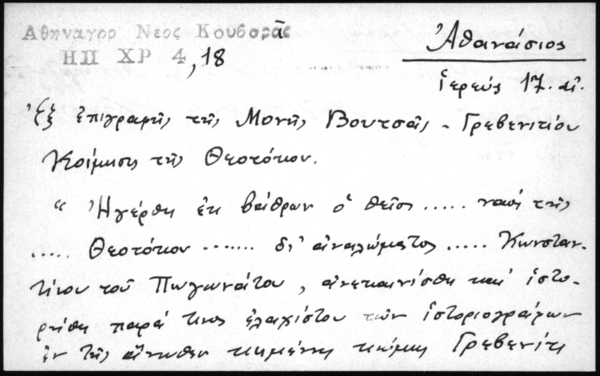 Αθηναγορ Νεος Κουβαρᾶς
ΗΠ ΧΡ 4, 18
Ἀθανάσιος
ἱερεύς 17. αἰ.
Ἐξ ἐπιγραφῆς τῆς Μονῆς Βουτσᾶς - Γρεβενιτίου
Κοίμησις τῆς Θεοτόκου.
" Ἠγέρθη ἐκ βάθρων ὁ θεῖος ..... ναός τῆς
..... Θεοτόκου ....... δι' ἀναλώματος ..... Κωνσταν-
τίνου τοῦ Πωγωνάτου, ἀνεκαινίσθη καί ἱστο-
ρήθη παρά τινος ἐλαχίστου τῶν ἱστοριογράφων
ἐν τῆς ἄνωθεν κειμένης κώμης Γρεβενίτι